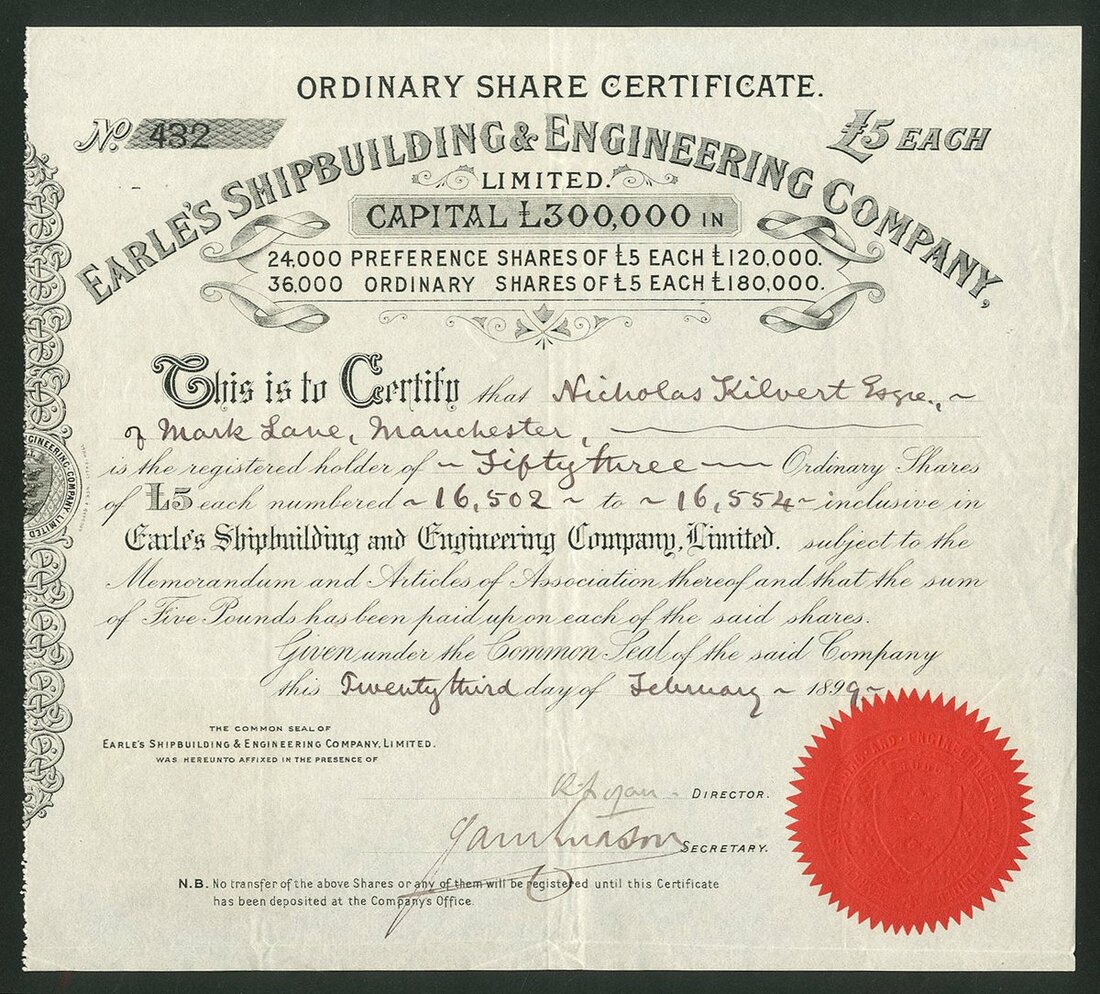 ORDINARY SHARE CERTIFICATE.
No. 432
£5 EACH
EARLE'S SHIPBUILDING & ENGINEERING COMPANY,
LIMITED.
CAPITAL £300,000 IN
24,000 PREFERENCE SHARES OF £5 EACH £120,000.
36,000 ORDINARY SHARES OF £5 EACH £180,000.
This is to Certify that Nicholas Kilvert Esqre., ~
of Mark Lane, Manchester,
is the registered holder of ~ Fifty three ~ Ordinary Shares
of £5 each numbered ~ 16,502 ~ to ~ 16,554 ~ inclusive in
Earle's Shipbuilding and Engineering Company, Limited. subject to the
Memorandum and Articles of Association thereof and that the sum
of Five Pounds has been paid up on each of the said shares.
Given under the Common Seal of the said Company
this Twenty third day of February ~ 1899 ~
THE COMMON SEAL OF
EARLE'S SHIPBUILDING & ENGINEERING COMPANY, LIMITED.
WAS HEREUNTO AFFIXED IN THE PRESENCE OF
DIRECTOR.
SECRETARY.
N.B. No transfer of the above Shares or any of them will be registered until this Certificate
has been deposited at the Company's Office.
GINEERING COMPANY LIMITED